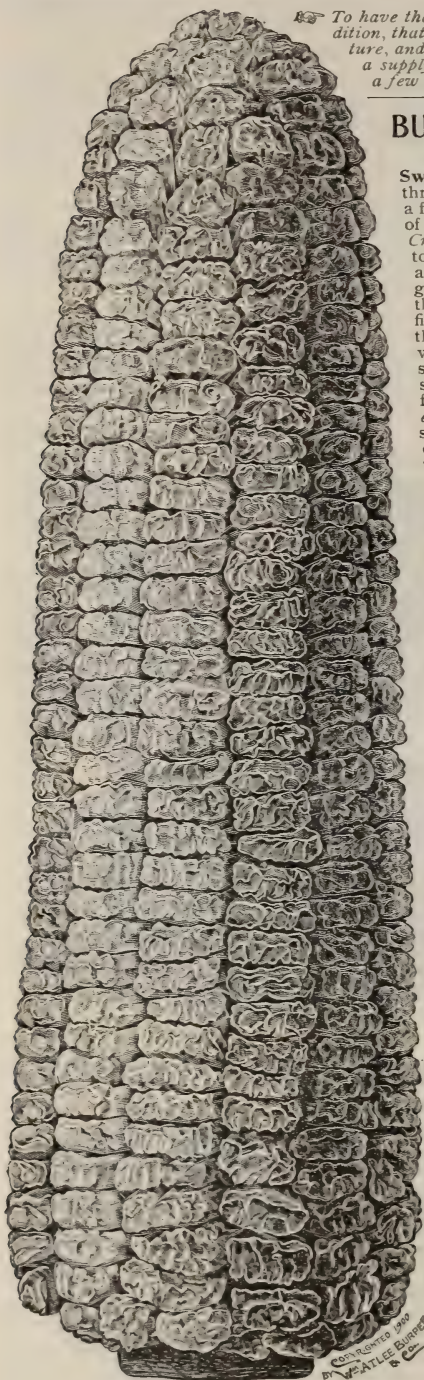 To have the
dition, that
ture, and
a supply
a few
BU
Sw
thr
a f
of
Cr
to
a
g
th
fi
th
v
s
s
f
e
s
BY COPYRIGHTED 1900
Wm ATLEE BURPEE
& CO.